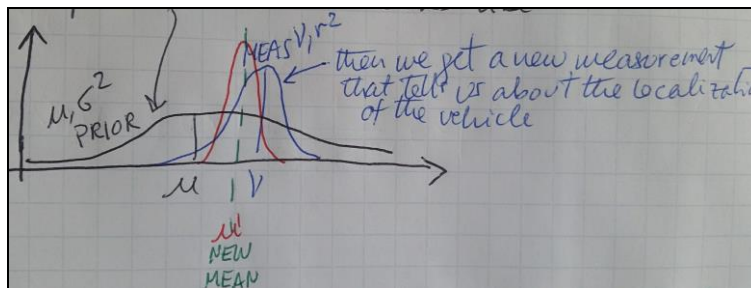 MEAS ν, r²
then we get a new measurement
that tells us about the localizati
of the vehicle
μ, σ²
PRIOR
μ
ν
μ'
NEW
MEAN